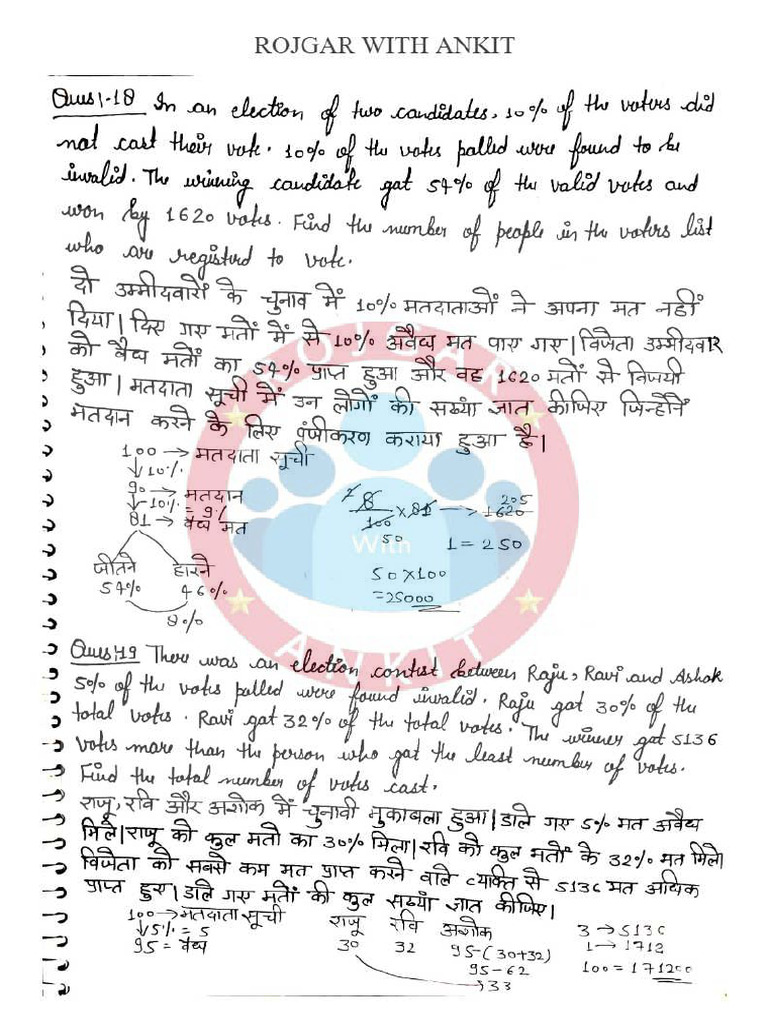 ROJGAR WITH ANKIT
Ques:-18 In an election of two candidates, 10% of the voters did
not cast their vote. 10% of the votes polled were found to be
invalid. The winning candidate got 54% of the valid votes and
won by 1620 votes. Find the number of people in the voters list
who are registerd to vote.
दो उम्मीदवारों के चुनाव में 10% मतदाताओं ने अपना मत नहीं
दिया। दिए गए मतों में से 10% अवैध मत पाए गए। विजेता उम्मीदवार
को वैध मतों का 54% प्राप्त हुआ और वह 1620 मतों से विजयी
हुआ। मतदाता सूची में उन लोगों की सख्या ज्ञात कीजिए जिन्होंने
मतदान करने के लिए पंजीकरण कराया हुआ है।
100 → मतदाता सूची
↓10%
90 → मतदान
↓10% = 9%
81 → वैध मत
जीतने हारने
54% 46%
8%
8/100 × 81 → 1620
50
205
1 = 250
50×100
=25000
Ques:19 There was an election contest between Raju, Ravi and Ashok
5% of the votes polled were found invalid. Raju got 30% of the
total votes. Ravi got 32% of the total votes. The winner got 5136
votes more than the person who got the least number of votes.
Find the total number of votes cast.
राजू, रवि और अशोक में चुनावी मुकाबला हुआ। डाले गए 5% मत अवैध
मिले। राजू को कुल मतों का 30% मिला। रवि को कुल मतों के 32% मत मिले।
विजेता को सबसे कम मत प्राप्त करने वाले व्यक्ति से 5136 मत अधिक
प्राप्त हुए। डाले गए मतों की कुल सख्या ज्ञात कीजिए।
100 → मतदाता सूची राजू रवि अशोक 3 → 5136
↓5% = 5 30 32 95-(30+32) 1 → 1712
95 = वैध 95-62 100 = 171200
→33
ROJGAR
With
ANKIT